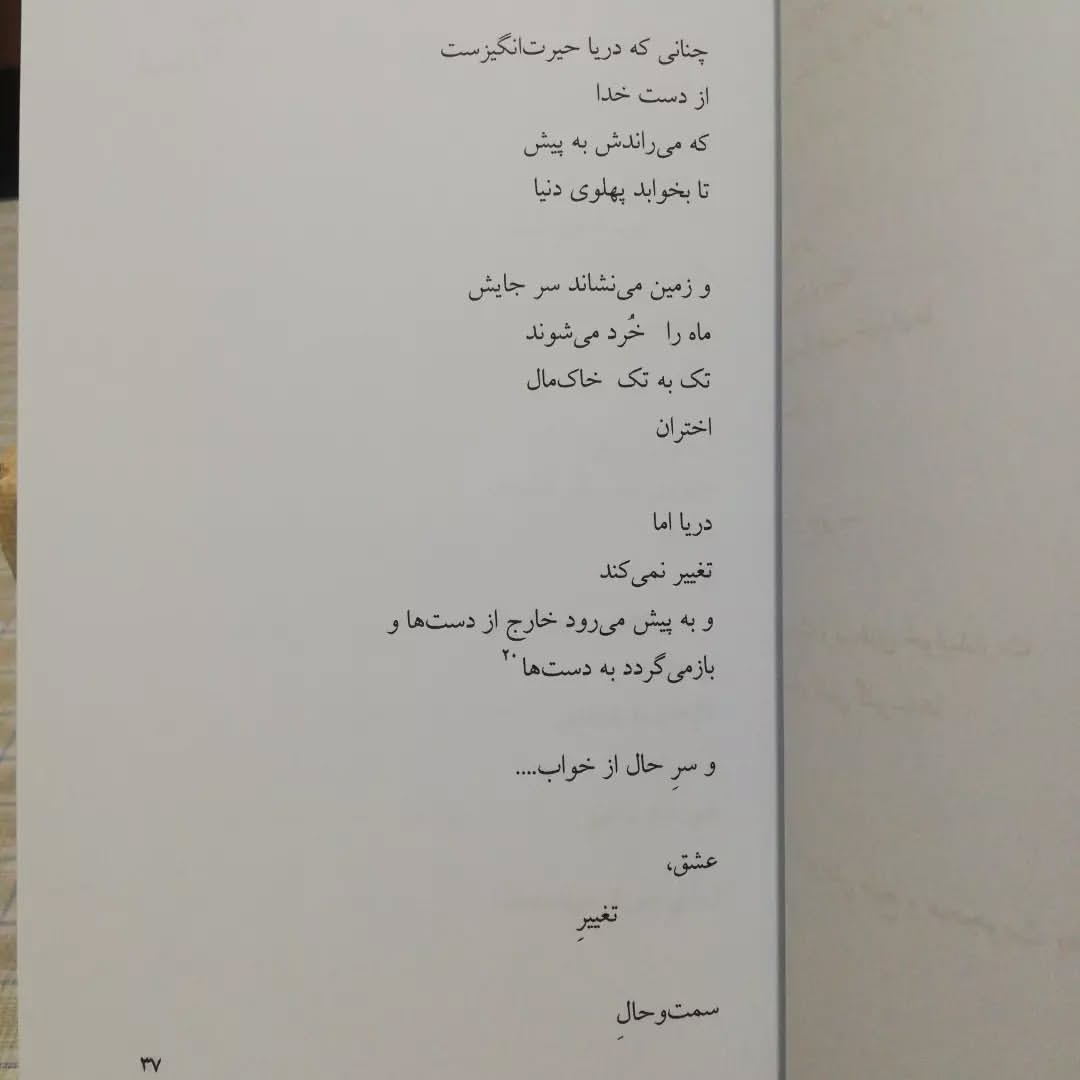 چنانی که دریا حیرت‌انگیزست
از دست خدا
که می‌راندش به پیش
تا بخوابد پهلوی دنیا
و زمین می‌نشاند سر جایش
ماه را خُرد می‌شوند
تک به تک خاک‌مال
اختران
دریا اما
تغییر نمی‌کند
و به پیش می‌رود خارج از دست‌ها و
بازمی‌گردد به دست‌ها۲۰
و سرِ حال از خواب....
عشق،
تغییرِ
سمت‌وحالِ
۳۷